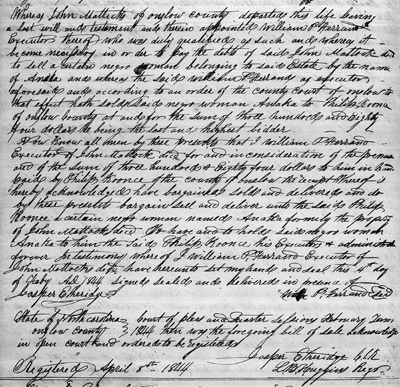 Whereas John Mattocks of onslow county departed this life leaving
a last will and testament and therein appointed William P. Ferrand
Executor thereof who was duly qualified as such and whereas it
became necessary in order to pay the debts of said John Mattock dcd
to sell a certain negro woman belonging to said Estate by the name
of Anaka and whereas the said William P Ferrand as executor
aforesaid and according to an order of the county court of onslow to
that effect hath sold said negro woman Anaka to Philip Roonce
of onslow county at and for the sum of three hundred and Eighty
four dollars he being the last and highest bidder
Now Know all men by these presents that I William P Ferrand
Executor of John Mattock dcd for and in consideration of the premises
and of the sum of three hundred & Eighty four dollars to him in hand
paid by Philip Roonce of the county of onslow the receipt thereof is
hereby acknowledged have bargained sold and delivered and do
by these presents bargain sell and deliver unto the said Philip
Roonce a certain negro woman named Anaka formerly the property
of John Mattock dcd To have and to hold said negro woman
Anaka to him the said Philip Roonce his Executors & administrators
forever In testimony where of I William P Ferrand Executor of
John Mattocks dcd have hereunto set my hand and seal this 4th day
of AD 1844 signed sealed and delivered in presence of
Jasper Etheridge Wm P. Ferrand Seal
State of North Carolina Court of pleas and Quarter Sessions Term
onslow county 1844 then was the foregoing bill of sale acknowledged
in open court and ordered to be registered
Jasper Etheridge Clk
Registered April 8th 1844 Huggins Regr